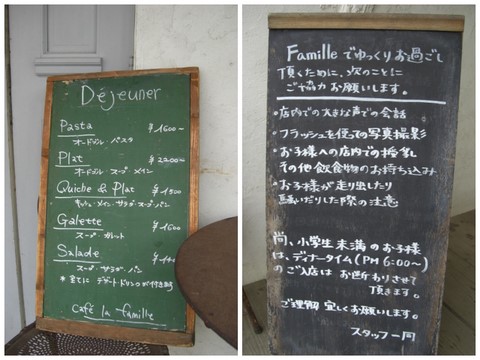 Déjeuner
Pasta ¥1600-
オードブル・パスタ
Plat ¥2200-
オードブル スープ・メイン
Quiche & Plat ¥1500
キッシュ・メイン・サラダ・スープ・パン
Galette ¥1600
スープ・ガレット
Salade
スープ・サラダ・パン
*全てに デザート・ドリンクが付きます
Café la famille
Familleでゆっくりお過ごし
頂くために、次のことに
ご協力お願いします。
・店内での大きな声での会話
・フラッシュを使っての写真撮影
・お子様への店内での授乳
その他飲食物のお持ち込み
・お子様が走り出したり
騒いだりした際の注意
尚、小学生未満のお子様
は、ディナータイム(PM 6:00〜)
のご入店は お断わりさせて
頂きます。
ご理解 宜しくお願いします。
スタッフ一同